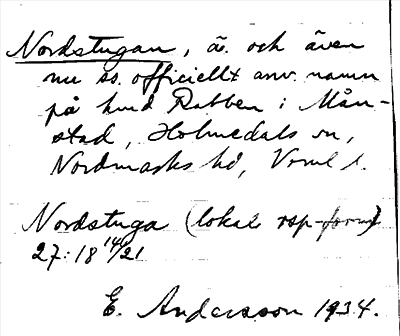 Nordstugan, ä. och även
nu ss. officiellt anv. namn
på hmd Rabben i Mån-
stad, Holmedals sn,
Nordmarks hd, Vrml. l.
Nordstuga (lokal rsp-form)
27:18 14/6 21
E. Andersson 1934.